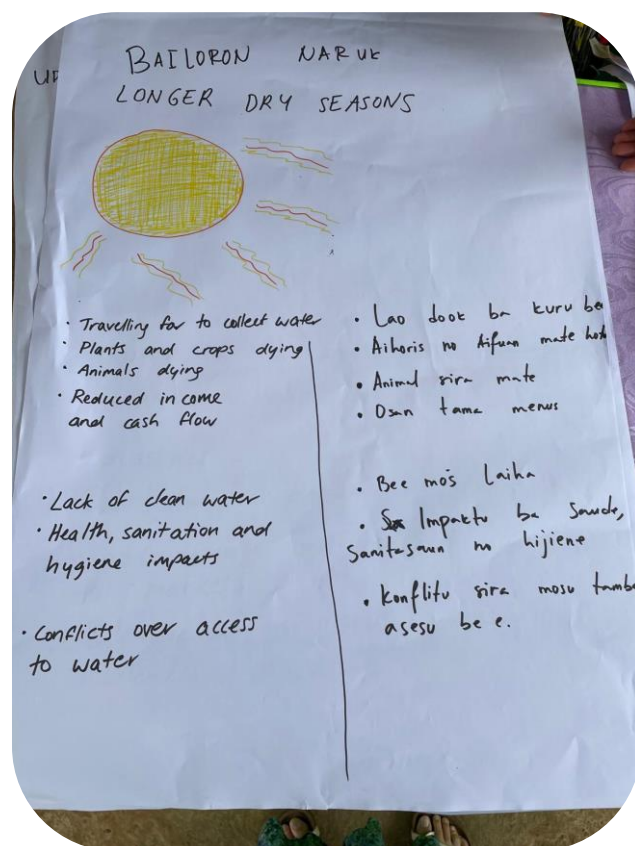 UP
BAILORON NARUK
LONGER DRY SEASONS
· Travelling far to collect water
· Plants and crops dying
· Animals dying
· Reduced income
and cash flow
· Lack of clean water
· Health, sanitation and
hygiene impacts
· Conflicts over access
to water
· Lao dook ba kuru be
· Aihoris no Aifuan mate
· Animal sira mate
· Osan tama menus
· Bee mo's Laiha
· Impaktu ba Saude,
Sanitasaun no hijiene
· Konflitu sira mosu tamba
asesu bee.